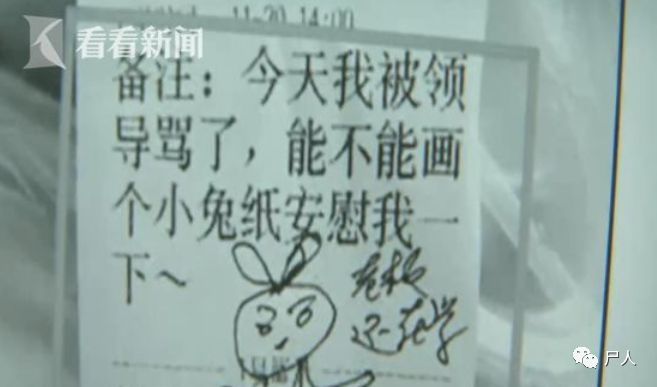 11-20 14:00
看看新闻
备注：今天我被领
导骂了，能不能画
个小兔纸安慰我一
下~
老板
还在学
尸人